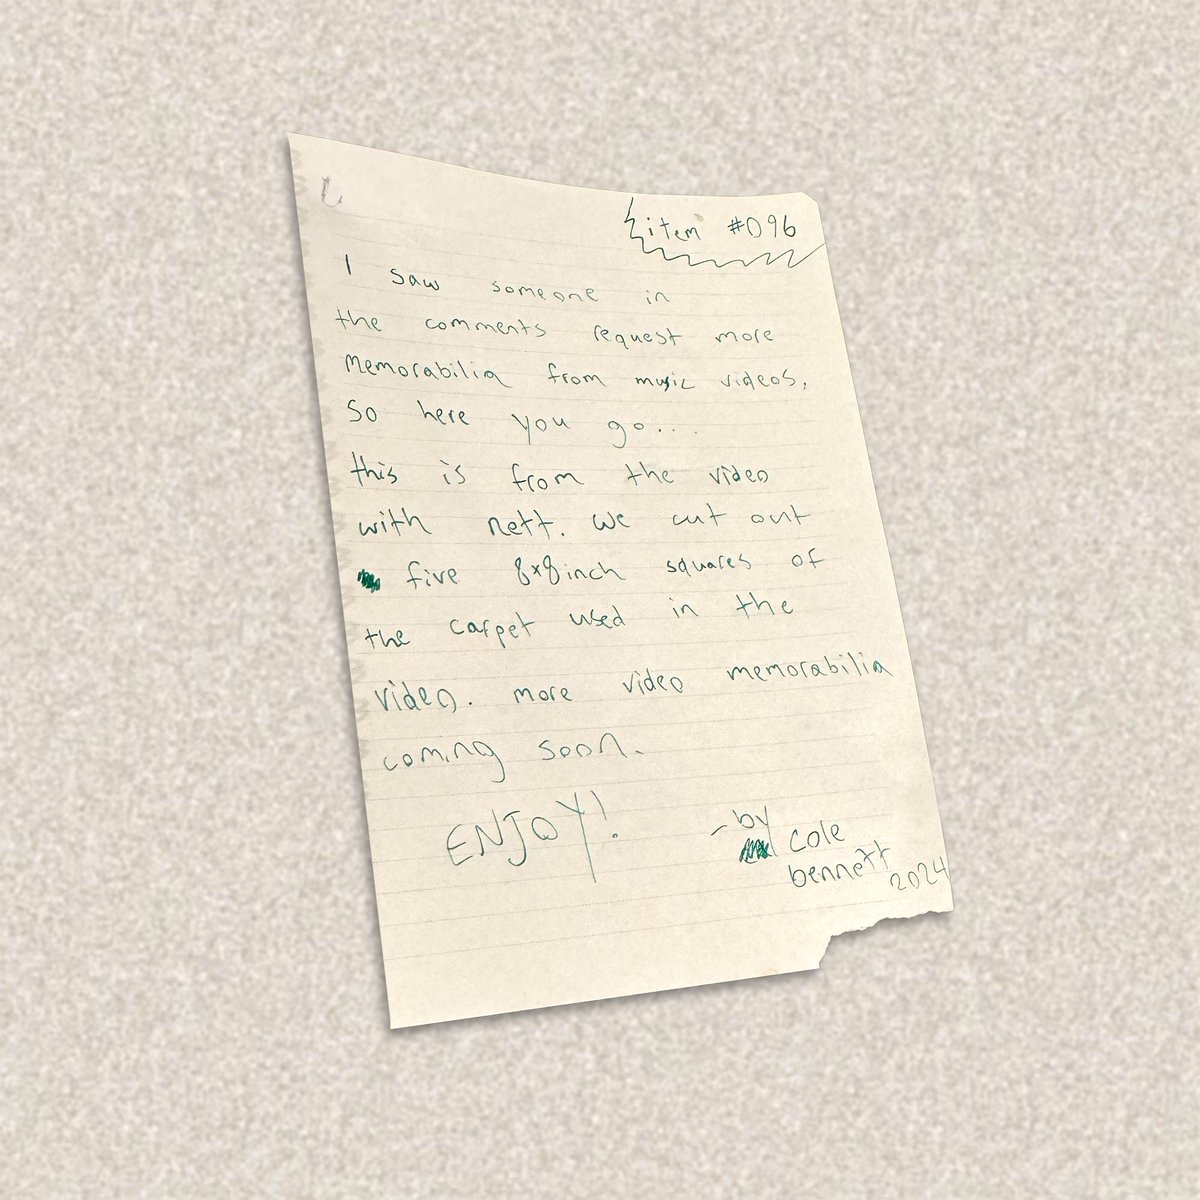 item #096
I saw someone in
the comments request more
memorabilia from music videos,
so here you go...
this is from the video
with nett. we cut out
five 8x8inch squares of
the carpet used in the
video. more video memorabilia
coming soon.
ENJOY!
- by
cole
bennett
2024